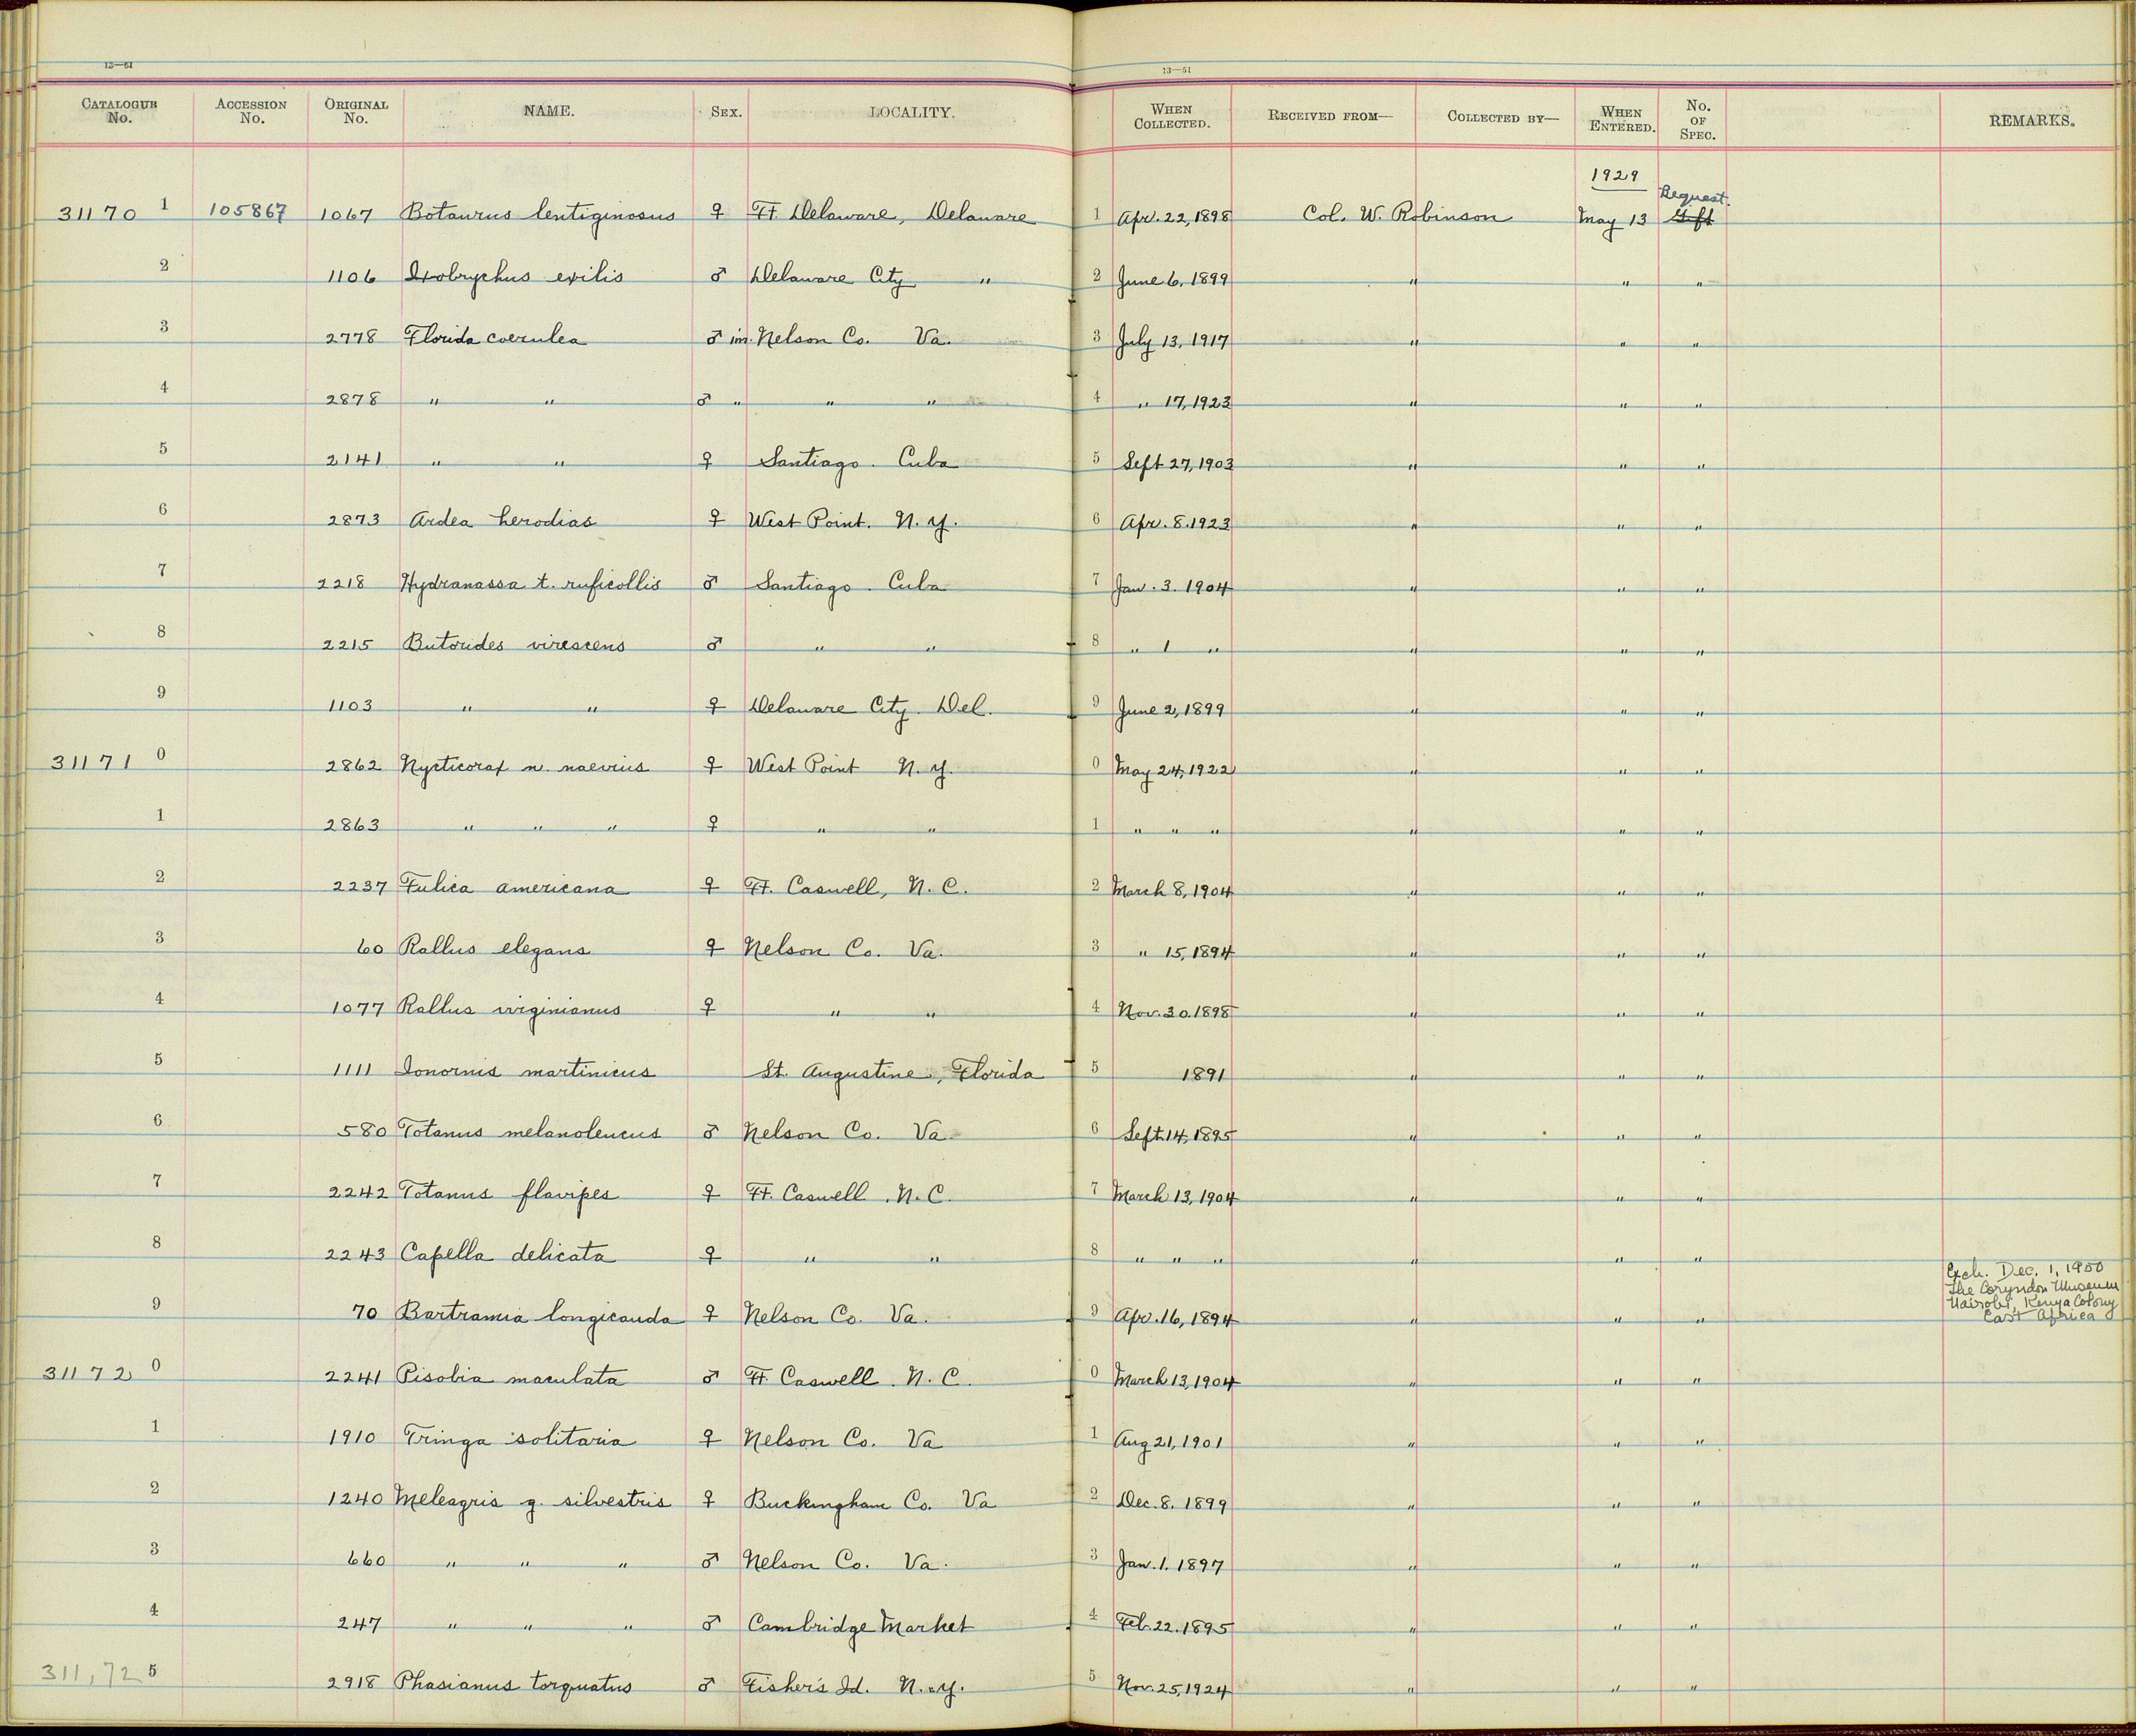 13—51
13—51
CATALOGUE No. ACCESSION No. ORIGINAL No. NAME. SEX. LOCALITY. WHEN COLLECTED. RECEIVED FROM— COLLECTED BY— WHEN ENTERED. No. OF SPEC. REMARKS.
1929 Bequest.
31170 1 105867 1067 Botaurus lentiginosus ♀ Ft. Delaware, Delaware 1 Apr. 22, 1898 Col. W. Robinson May 13 Gift
2 1106 Ixobrychus exilis ♂ Delaware City " 2 June 6, 1899 " " "
3 2778 Florida coerulea ♂ im. Nelson Co. Va. 3 July 13, 1917 " " "
4 2878 " " ♂ " " " 4 " 17, 1923 " " "
5 2141 " " ♀ Santiago. Cuba 5 Sept 27, 1903 " " "
6 2873 Ardea herodias ♀ West Point. N.Y. 6 Apr. 8. 1923 " " "
7 2218 Hydranassa t. ruficollis ♂ Santiago. Cuba 7 Jan. 3. 1904 " " "
8 2215 Butorides virescens ♂ " " 8 " 1 " " " "
9 1103 " " ♀ Delaware City. Del. 9 June 2, 1899 " " "
31171 0 2862 Nycticorax n. naevius ♀ West Point N.Y. 0 May 24, 1922 " " "
1 2863 " " " ♀ " " 1 " " " " " "
2 2237 Fulica americana ♀ Ft. Caswell, N.C. 2 March 8, 1904 " " "
3 60 Rallus elegans ♀ Nelson Co. Va. 3 " 15, 1894 " " "
4 1077 Rallus virginianus ♀ " " 4 Nov. 30. 1898 " " "
5 1111 Ionornis martinicus St. Augustine, Florida 5 1891 " " "
6 580 Totanus melanoleucus ♂ Nelson Co. Va. 6 Sept. 14, 1895 " " "
7 2242 Totanus flavipes ♀ Ft. Caswell. N.C. 7 March 13, 1904 " " "
8 2243 Capella delicata ♀ " " 8 " " " " " "
Exch. Dec. 1, 1950
The Coryndon Museum
Nairobi, Kenya Colony
East Africa
9 70 Bartramia longicauda ♀ Nelson Co. Va. 9 Apr. 16, 1894 " " "
31172 0 2241 Pisobia maculata ♂ Ft. Caswell. N.C. 0 March 13, 1904 " " "
1 1910 Tringa solitaria ♀ Nelson Co. Va 1 Aug 21, 1901 " " "
2 1240 Meleagris g. silvestris ♀ Buckingham Co. Va 2 Dec. 8. 1899 " " "
3 660 " " " ♂ Nelson Co. Va. 3 Jan. 1. 1897 " " "
4 247 " " " ♂ Cambridge Market 4 Feb. 22. 1895 " " "
311,72 5 2918 Phasianus torquatus ♂ Fisher's Id. N.Y. 5 Nov. 25, 1924 " " "